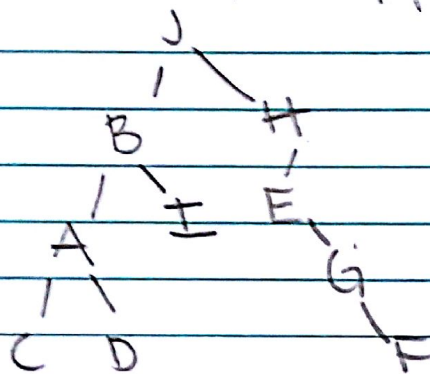 J
B H
I E
A G
C D F